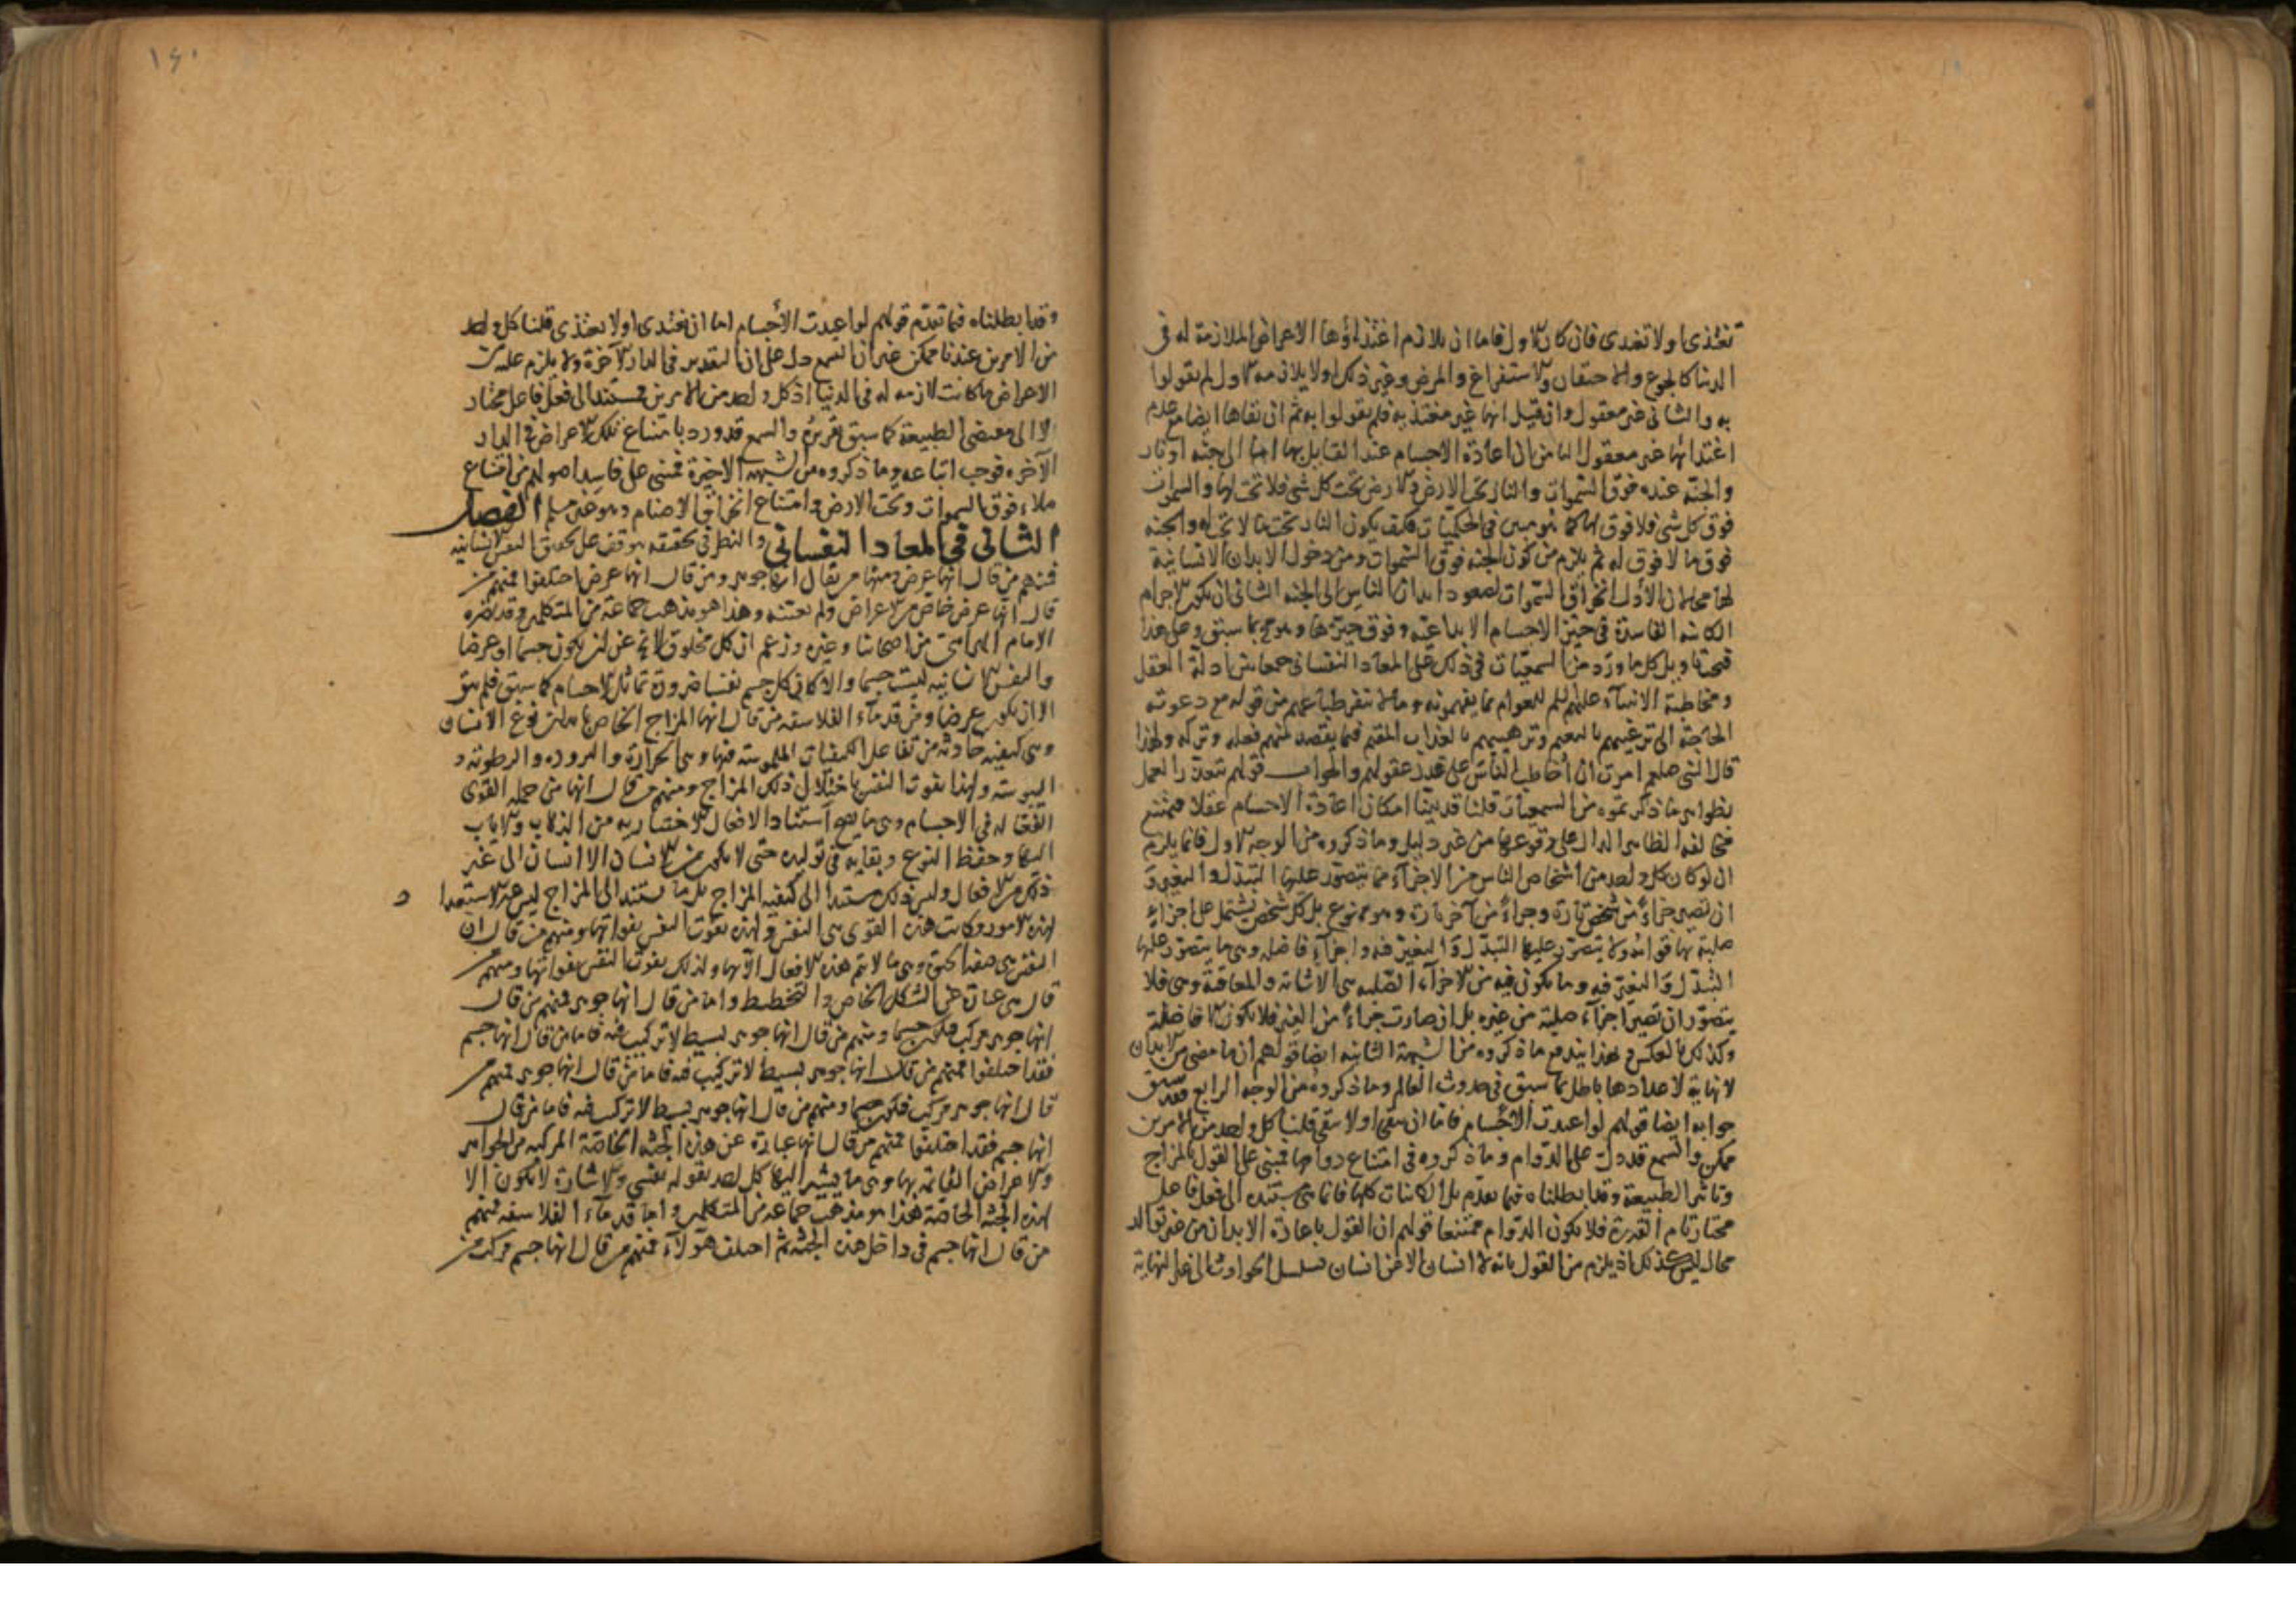 تغتذى او لا تغتذى فان كان الاول فاما ان يلازم اغتذاؤها الاعراض الملازمة له فى
الدنيا كالجوع والاحتقان والاستفراغ والمرض وغير ذلك او لا يلازمه الاول لم يقولوا
به والثانى غير معقول وان قيل انها غير مغتذية فلم يقولوا به ثم ان بقاها ايضا مع عدم
اغتذائها غير معقول الثامن ان اعادة الاجسام عند القايل بها اما الى جنة او نار
والجنة عنده فوق السموات والنار تحت الارض والارض تحت كل شى فلا تحت لها والسموات
فوق كل شى فلا فوق لها كما بين فى الحكميات فكيف يكون النار تحت ما لا تحت له والجنة
فوق ما لا فوق له ثم يلزم من كون الجنة فوق السموات ومن دخول الابدان الانسانية
لها محالان الأول انخراق السموات لصعود ابدان الناس الى الجنة الثانى ان يكون الاجرام
الكاينه الفاسدة فى حيز الاجسام الابداعية وفوق حيزها وهو مح بما سبق وعلى هذا
فيجب تاويل كل ما ورد من السمعيات فى ذلك على المعاد النفسانى جمعا بين ادلة العقل
ومخاطبة الانبياء عليهم السلم للعوام بما يفهمونه وما لا تنفر طباعهم من قوله مع دعوته
الحاجة الى ترغيبهم بالنعيم وترهيبهم بالعذاب المقيم فيما يقصد منهم فعله وتركه ولهذا
قال النبى صلعم امرت ان أخاطب الناس على قدر عقولهم والجواب قولهم بتعذر العمل
بظواهر ما ذكرتموه من السمعيات قلنا قد بينا امكان اعادة الاجسام عقلا فيمتنع
مخالفة الظاهر الدال على وقوعها من غير دليل وما ذكروه من الوجه الاول فانما يلزم
ان لو كان كل واحد من أشخاص الناس من الاجزاء مما يتصور عليها التبدل والتغير و
ان تصير جزاءً من شخص تارة وجزاءً من آخر تارة وهو ممنوع بل كل شخص يشتمل على اجزاءٍ
صلبة بها قوامه ولا يتصور عليها التبدل والتغير فيه واجزاءٍ فاضله وهى ما يتصور عليها
التبدل والتغير فيه وما يكون فيه من الاجزاء الصلبه هى الاثابة والمعاقبة وهى فلا
يتصور ان تصير اجزآء صلبة من غيره بل ان صارت جزاءً من الغير فلا يكون الا فاضلة
وكذلك بالعكس وبهذا يندفع ما ذكروه من الشبهة الثانيه ايضا قولهم ان ما مضى من الابدان
لا نهاية لاعدادها باطل بما سبق فى حدوث العالم وما ذكروه من الوجه الرابع فقد سبق
جوابه ايضا قولهم لو اعيدت الاجسام فاما ان تبقى او لا تبقى قلنا كل واحد من الامرين
ممكن والسمع قد دل على الدوام وما ذكروه فى امتناع دوامها فمبنى على القول بالمزاج
وتاثير الطبيعة وقد ابطلناه فيما تقدم بل الكاينات كلها فانما هى مستنده الى فعل فاعل
مختار تام القدرة فلا يكون الدوام ممتنعا قولهم ان القول باعادة الابدان من غير توالد
محال ليس كذلك اذ يلزم من القول بانه لا انسان الا من انسان تسلسل الحوادث الى غير النهاية
١٤٠
وقد ابطلناه فيما تقدم قولهم لو اعيدت الأجسام اما ان تغتذى او لا تغتذى قلنا كل واحد
من الامرين عندنا ممكن غير ان السمع دل على ان التقدير فى الدار الآخرة ولا يلزم عليه من
الاعراض ما كانت لازمه له فى الدنيا اذ كل واحد من الامرين مستند الى فعل فاعل مختار
لا الى مقتضى الطبيعة كما سبق تقريره والسمع قد ورد بامتناع تلك الاعراض فى الدار
الآخره فوجب اتباعه وما ذكروه من الشبهة الاخيرة فمبنى على فاسد اصولهم من امتناع
ملاء فوق السموات وتحت الارض وامتناع انخراق الاجسام وهو غير مسلم الفصل
الثانى فى المعاد النفسانى والنظر فى تحقيقه يتوقف على تحقيق النفس الانسانيه
فمنهم من قال انها عرض ومنها من قال انها جوهر ومن قال انها عرض اختلفوا فمنهم من
قال انها عرض خاص من الاعراض ولم يعينه وهذا هو مذهب جماعة من المتكلمين وقد نصره
الامام الهراسى من اصحابنا وغيره وزعم ان كل مخلوق لا يخ عن ان يكون جسما او عرضا
والنفس الانسانيه ليست جسما والا لكان كل جسم نفسا ضرورة تماثل الاجسام كما سبق فلم يبق
الا ان يكون عرضا ومن قدماء الفلاسفه من قال انها المزاج الخاص بابدان نوع الانسان
وهى كيفية حادثة من تفاعل الكيفيات الملموسة فيها وهى الحرارة والبرودة والرطوبة و
اليبوسة ولهذا تفوت النفس باختلال ذلك المزاج ومنهم من قال انها من جملة القوى
الفعالة فى الاجسام وهى ما يصح استناد الافعال الاختياريه من الذهاب والاياب
اليها وحفظ النوع وبقايه فى توليده حتى لا يكون من الانسان الا انسان الى غير
ذلك من الافعال وليس ذلك مستندا الى كيفية المزاج بل ما يستند الى المزاج ليس غير الاستعدا د
لهذه الامور وكانت هذه القوى هى النفس ولهذه تفوت النفس بفواتها ومنهم من قال ان
النفس هى صفة الحيوة وهى ما لا تتم هذه الافعال الا بها ولذلك يفوت النفس بفواتها ومنهم من
قال هى عبارة عن الشكل الخاص والتخطيط واما من قال انها جوهر فمنهم من قال
انها جوهر مركب فيكون جسما ومنهم من قال انها جوهر بسيط لا تركيب فيه فاما من قال انها جسم
فقد اختلفوا فمنهم من قال انها جوهر بسيط لا تركيب فيه فاما من قال انها جوهر فمنهم من
قال انها جوهر مركب فيكون جسما ومنهم من قال انها جوهر بسيط لا تركيب فيه فاما من قال
انها جسم فقد اختلفوا فمنهم من قال انها عبارة عن هذه الجثة الخاصة المركبه من الجواهر
والاعراض القائمة بها وهى ما يشير اليها كل احد بقوله نفسى والاشارة لا تكون الا
لهذه الجثة الخاصة هذا هو مذهب جماعة من المتكلمين واما قدماء الفلاسفه فمنهم
من قال انها جسم فى داخل هذه الجثة ثم اختلف هؤلاء فمنهم من قال انها جسم مركب من